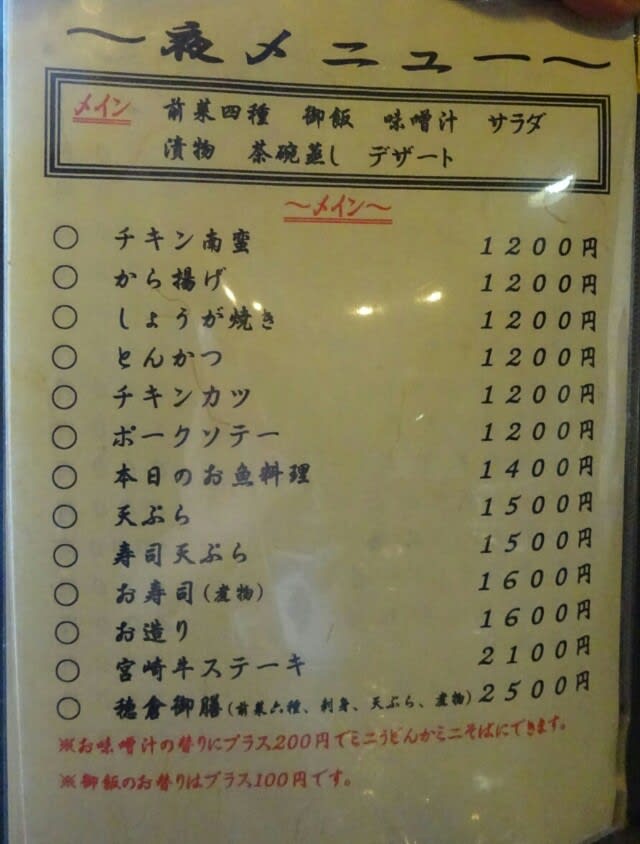 ～夜メニュー～
メイン 前菜四種 御飯 味噌汁 サラダ
漬物 茶碗蒸し デザート
～メイン～
○ チキン南蛮 1200円
○ から揚げ 1200円
○ しょうが焼き 1200円
○ とんかつ 1200円
○ チキンカツ 1200円
○ ポークソテー 1200円
○ 本日のお魚料理 1400円
○ 天ぷら 1500円
○ 寿司天ぷら 1500円
○ お寿司(煮物) 1600円
○ お造り 1600円
○ 宮崎牛ステーキ 2100円
○ 穂倉御膳(前菜六種、刺身、天ぷら、煮物) 2500円
※お味噌汁の替りにプラス200円でミニうどんかミニそばにできます。
※御飯のお替りはプラス100円です。